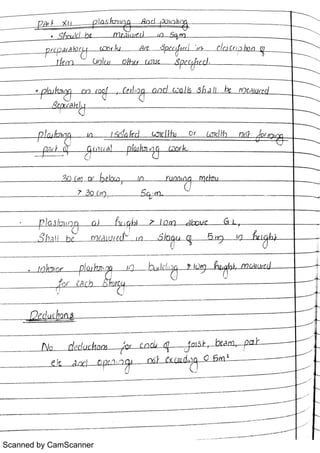 Part XII plastering And painting
• Should be measured in Sqm
preparatory works are Specified in description of
Item Unless other wise Specified.
• plastering on roof, Ceiling and walls Shall be measured
Separately
plastering in Isolated widths or width not forming
part of general plastering work.
30 cm or below, in running metre
> 30 cm, Sq.m.
• Plastering at height > 10m above G L,
Shall be measured in Stage of 5m in height
• Interior plastering in building > 10m height, measured
for each Storey
Deductions
No deductions for ends of joist, beam, post
etc and openings not exceeding 0.5m²
Scanned by CamScanner